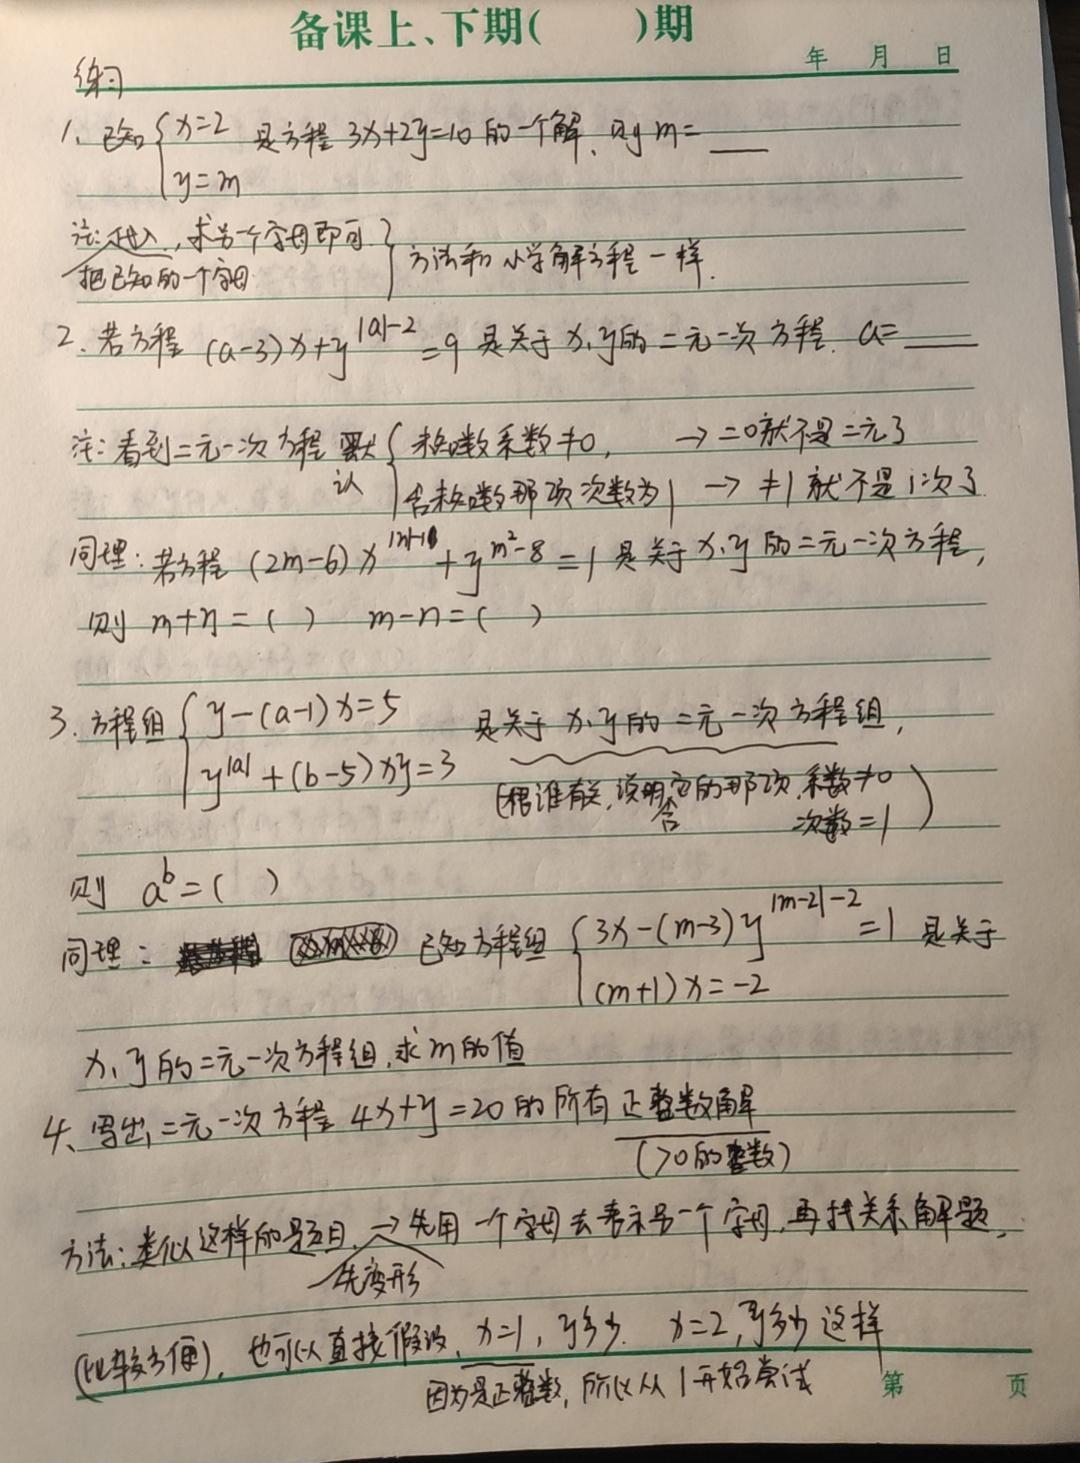 备课上、下期( )期
年 月 日
练习
1、已知{x=2 是方程 3x+2y=10 的一个解、则 m=___
y=m
注:代入,求另一个字母即可}方法和小学解方程一样.
把已知的一个字母
2、若方程 (a-3)x+y^{|a|-2}=9 是关于 x、y的二元一次方程. a=___
注: 看到二元一次方程 默认{未知数系数≠0, → =0就不是二元了
含未知数那项次数为1 → ≠1 就不是1次了.
同理: 若方程 (2m-6)x^{|n|-1}+y^{m²-8}=1 是关于 x、y 的二元一次方程,
则 m+n=( ) m-n=( )
3. 方程组{y-(a-1)x=5 是关于 x、y的二元一次方程组,
y^{|a|}+(b-5)xy=3
(跟谁有关,说明含它的那项,系数≠0
次数=1)
则 a^b=( )
同理: 已知方程组{3x-(m-3)y^{|m-2|-2}=1 是关于
(m+1)x=-2
x、y的二元一次方程组,求m的值
4、写出二元一次方程 4x+y=20的所有正整数解
(>0的整数)
方法: 类似这样的题目 → 先用一个字母去表示另一个字母,再找关系解题,
先变形
(比较方便),也可以直接假设、x=1,y多少. x=2,y多少 这样
因为是正整数,所以从1开始尝试
第 页